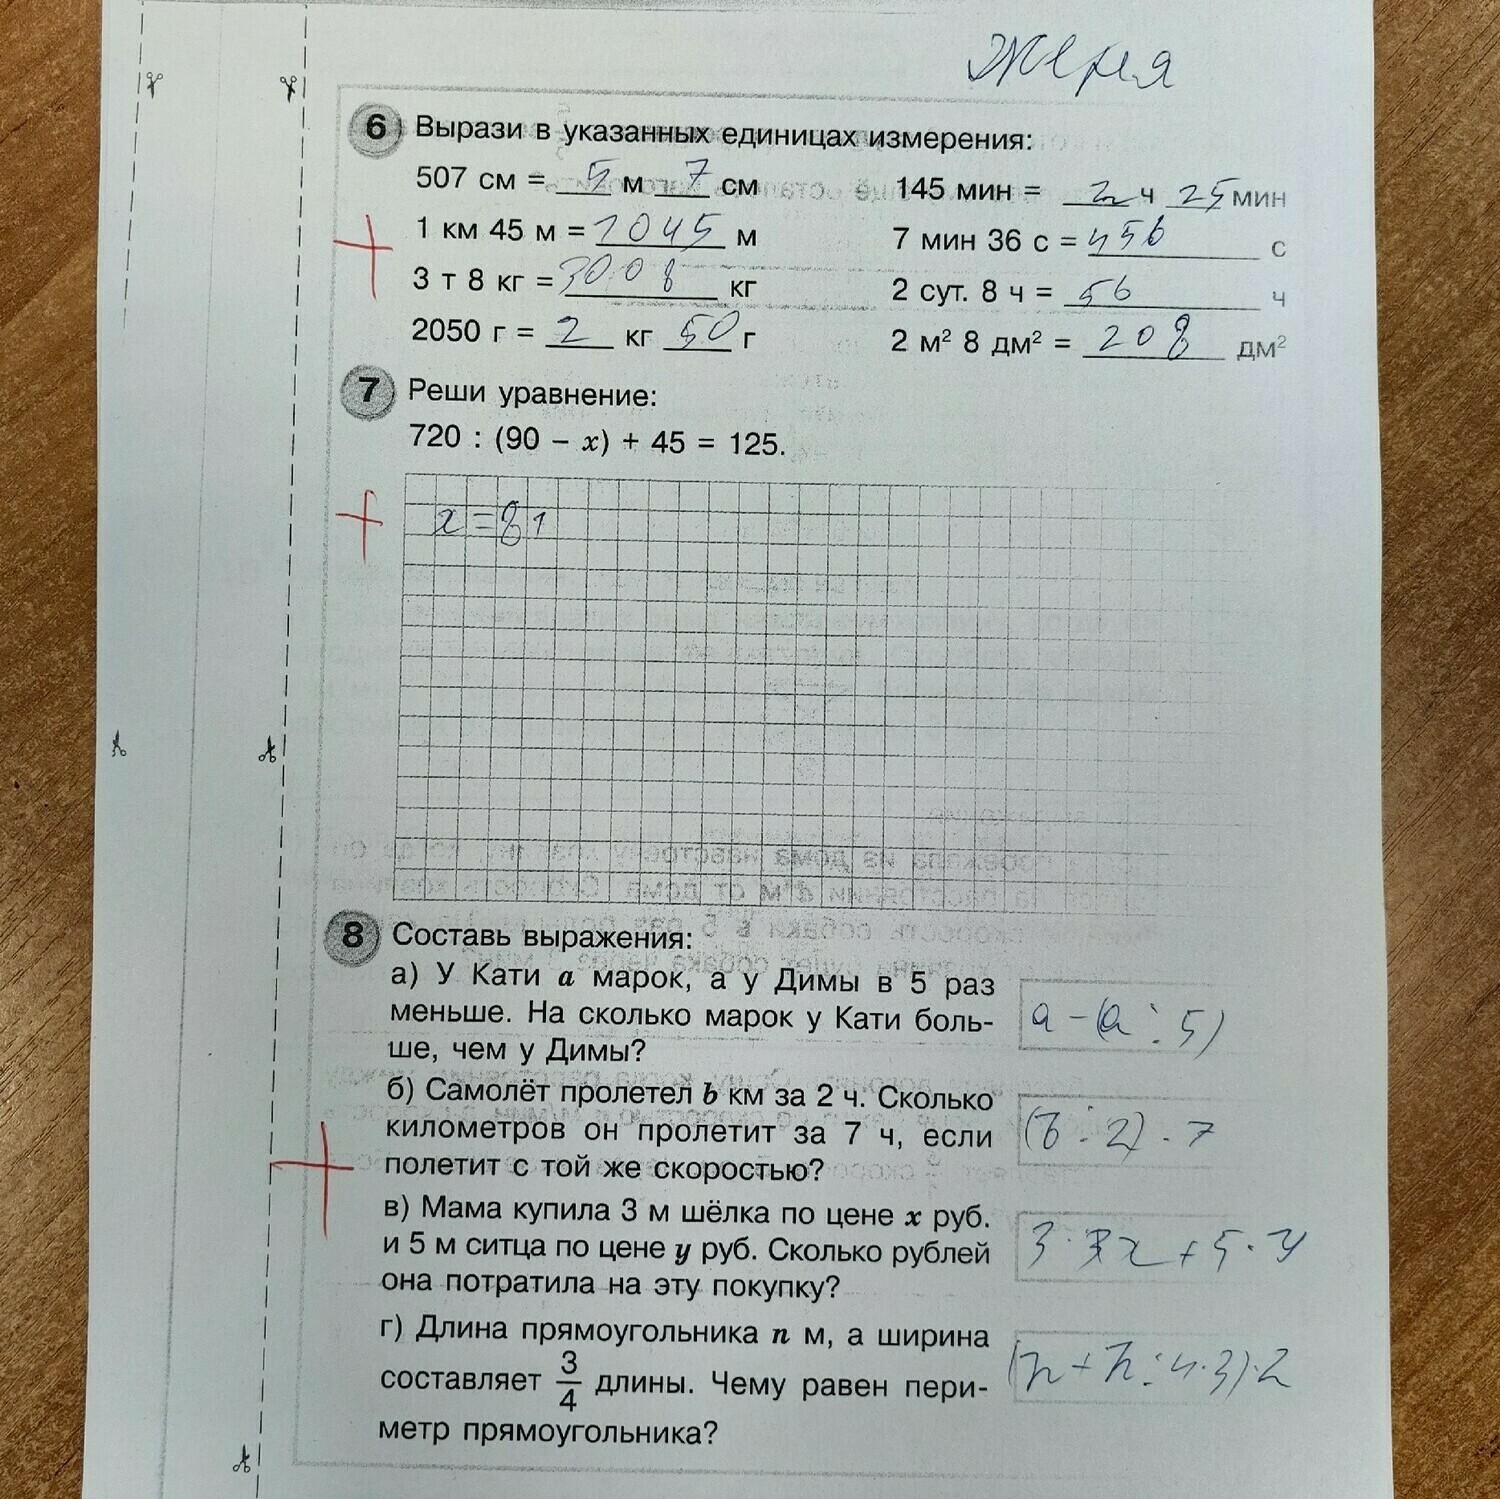 Женя
6 Вырази в указанных единицах измерения:
507 см = 5 м 7 см 145 мин = 2 ч 25 мин
1 км 45 м = 1045 м 7 мин 36 с = 456 с
3 т 8 кг = 3008 кг 2 сут. 8 ч = 56 ч
2050 г = 2 кг 50 г 2 м² 8 дм² = 208 дм²
7 Реши уравнение:
720 : (90 – x) + 45 = 125.
x = 81
8 Составь выражения:
а) У Кати a марок, а у Димы в 5 раз
меньше. На сколько марок у Кати боль- a – (a : 5)
ше, чем у Димы?
б) Самолёт пролетел b км за 2 ч. Сколько
километров он пролетит за 7 ч, если (b : 2) · 7
полетит с той же скоростью?
в) Мама купила 3 м шёлка по цене x руб.
и 5 м ситца по цене y руб. Сколько рублей 3 · x + 5 · y
она потратила на эту покупку?
г) Длина прямоугольника n м, а ширина
составляет 3/4 длины. Чему равен пери- (n + n : 4 · 3) · 2
метр прямоугольника?